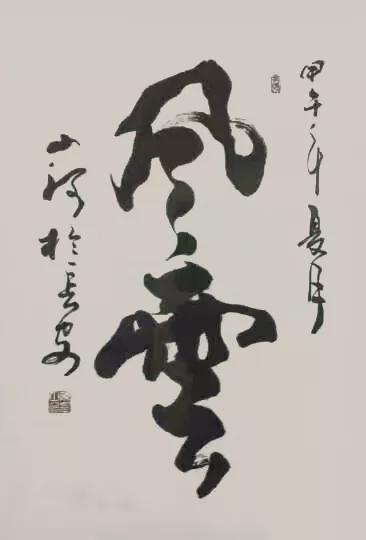 甲午年夏月
風雲
山河於長安